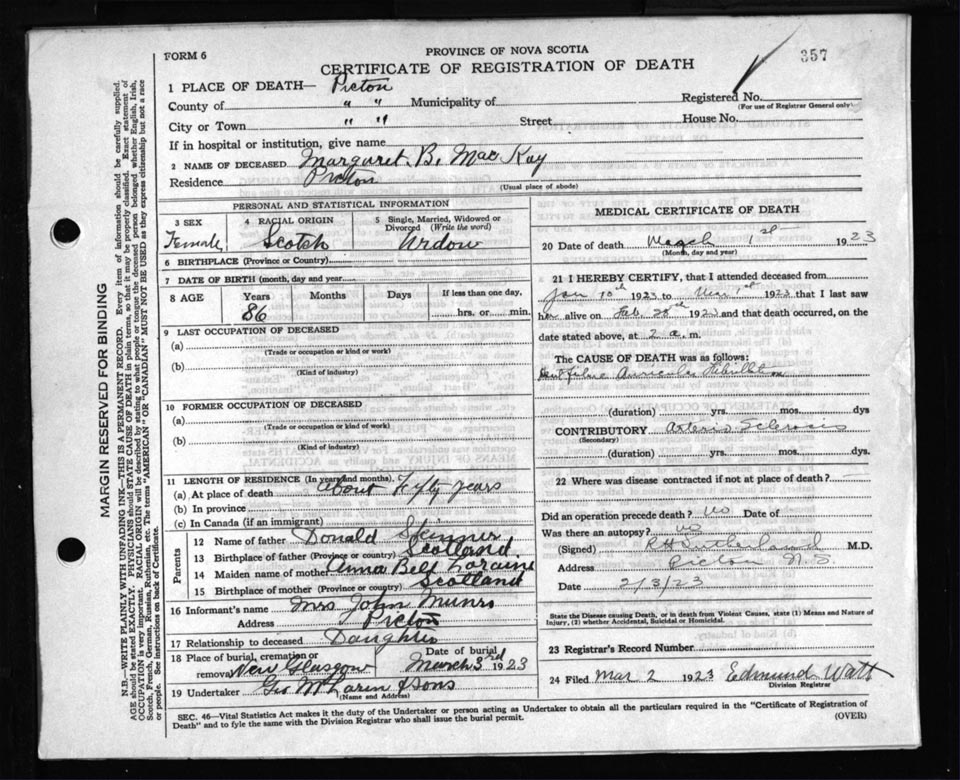 FORM 6
PROVINCE OF NOVA SCOTIA
357
CERTIFICATE OF REGISTRATION OF DEATH
1 PLACE OF DEATH— Picton
County of " " Municipality of
Registered No.
(For use of Registrar General only)
City or Town " " Street House No.
If in hospital or institution, give name
2 NAME OF DECEASED Margaret B. MacKay
Residence Picton
(Usual place of abode)
PERSONAL AND STATISTICAL INFORMATION
3 SEX Female
4 RACIAL ORIGIN Scotch
5 Single, Married, Widowed or Divorced (Write the word) Widow
6 BIRTHPLACE (Province or Country)
7 DATE OF BIRTH (month, day and year)
8 AGE Years Months Days If less than one day,
86 hrs. or min.
9 LAST OCCUPATION OF DECEASED
(a)
(Trade or occupation or kind or work)
(b)
(Kind of industry)
10 FORMER OCCUPATION OF DECEASED
(a)
(Trade or occupation or kind of work)
(b)
(Kind of industry)
11 LENGTH OF RESIDENCE (In years and months).
(a) At place of death About Fifty years
(b) In province
(c) In Canada (if an immigrant)
Parents
12 Name of father Donald Skinner
13 Birthplace of father (Province or country) Scotland
14 Maiden name of mother Anna Bell Loraine
15 Birthplace of mother (Province or country) Scotland
16 Informant's name Mrs John Munro
Address Picton
17 Relationship to deceased Daughter
18 Place of burial, cremation or removal New Glasgow
Date of burial March 3rd 1923
19 Undertaker Geo McLaren & Sons
(Name and Address)
MEDICAL CERTIFICATE OF DEATH
20 Date of death March 1st 1923
(Month, day and year)
21 I HEREBY CERTIFY, that I attended deceased from
Jan 10th 1923 to Mar 1st 1923 that I last saw
her alive on Feb. 28th 1923 and that death occurred, on the
date stated above, at 2 a.m.
The CAUSE OF DEATH was as follows:
Auricular Fibrillation
(duration) yrs. mos. dys
CONTRIBUTORY Arterio Sclerosis
(Secondary)
(duration) yrs. mos. dys.
22 Where was disease contracted if not at place of death?
Did an operation precede death? no Date of
Was there an autopsy? no
(Signed) R H Sutherland M.D.
Address Picton N.S.
Date 2/3/23
State the Disease causing Death, or in death from Violent Causes, state (1) Means and Nature of
Injury, (2) whether Accidental, Suicidal or Homicidal.
23 Registrar's Record Number
24 Filed Mar 2 1923 Edmund Watt
Division Registrar
SEC. 46—Vital Statistics Act makes it the duty of the Undertaker or person acting as Undertaker to obtain all the particulars required in the "Certificate of Registration of
Death" and to fyle the same with the Division Registrar who shall issue the burial permit. (OVER)
MARGIN RESERVED FOR BINDING
N.B.—WRITE PLAINLY WITH UNFADING INK—THIS IS A PERMANENT RECORD. Every item of information should be carefully supplied.
AGE should be stated EXACTLY. PHYSICIANS should STATE CAUSE OF DEATH in plain terms, so that it may be properly classified. Exact statement of
OCCUPATION is very important. RACIAL ORIGIN will be described by stating to what people or tongue the deceased person belonged whether English, Irish,
Scotch, French, German, Russian, Ruthenian, etc. The terms "AMERICAN" OR "CANADIAN" MUST NOT BE USED as they express citizenship but not a race
or people. See instructions on back of Certificate.